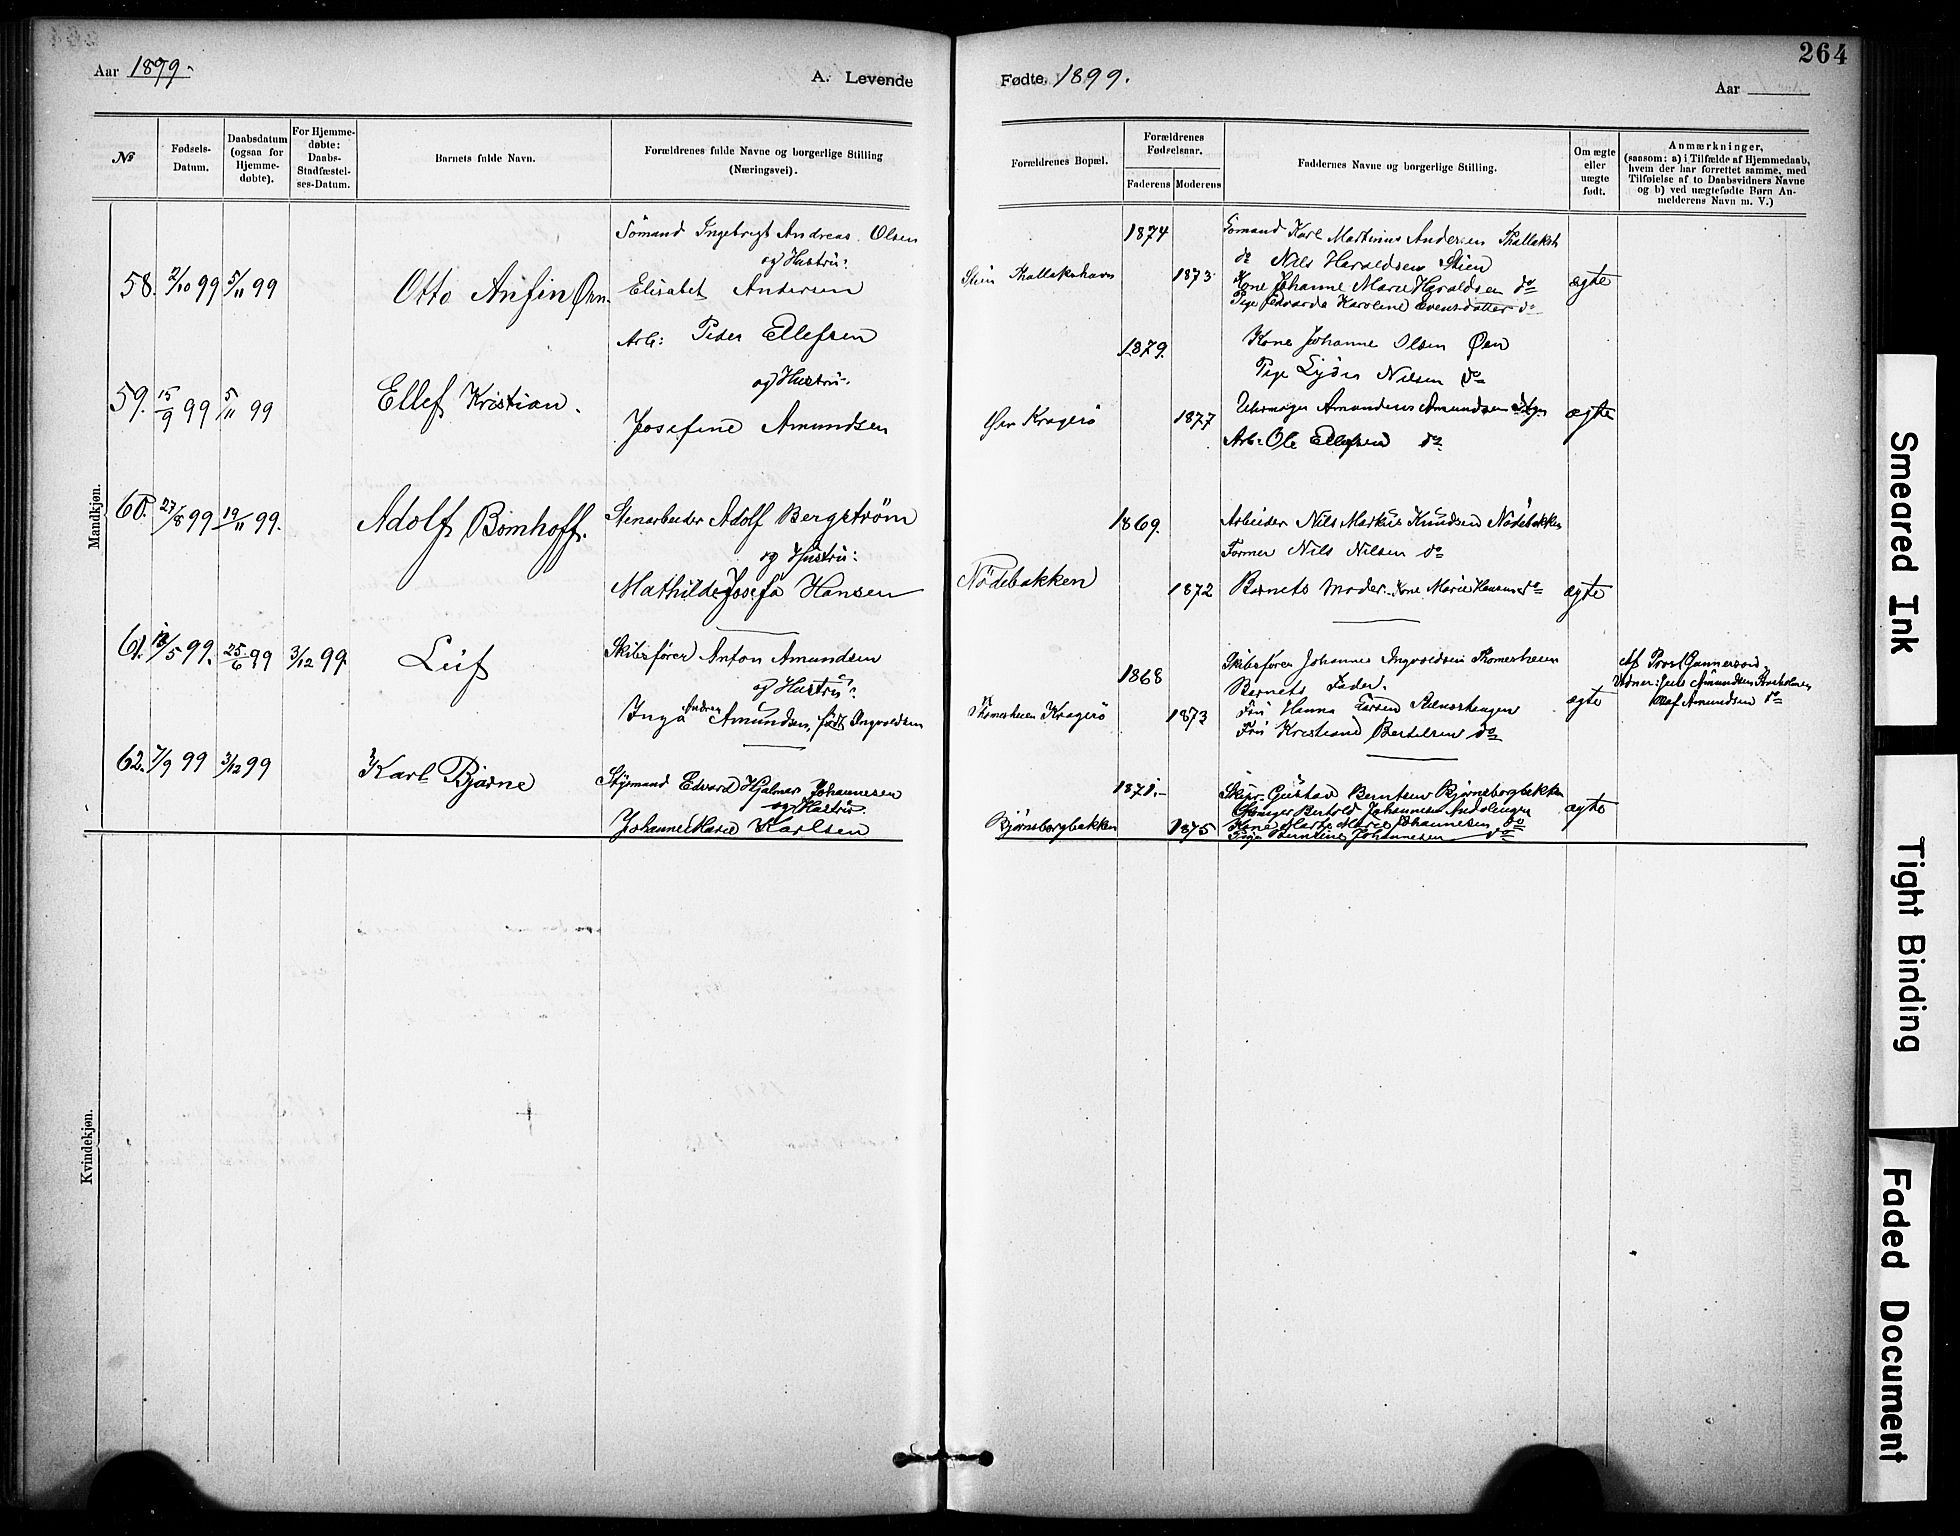 264
Aar 1899.
A. Levende
Fødte. 1899.
Aar
No
Fødsels-Datum.
Daabsdatum (ogsaa for Hjemme-døbte).
For Hjemme-døbte: Daabs-Stadfæstel-ses-Datum.
Barnets fulde Navn.
Forældrenes fulde Navne og borgerlige Stilling (Næringsvei).
Forældrenes Bopæl.
Forældrenes Fødselsaar.
Faderens
Moderens
Faddernes Navne og borgerlige Stilling.
Om ægte eller uægte født.
Anmærkninger,
(saasom: a) i Tilfælde af Hjemmedaab,
hvem der har forrettet samme, med
Tilføielse af to Daabsvidners Navne
og b) ved uægtefødte Børn An-
melderens Navn m. V.)
Mandkjøn.
58. 2/10 99 5/11 99
Otto Anfin
Sömand Ingebrigt Andreas Olsen
og Hustru:
Elisabet Andersen
Stien
1874
1873
Sömand Karl Martinius Andersen
do Nils Haraldsen Stien
Kone Johanne Marie Haraldsen do
Pige Edvarda Karoline Evensdatter do
ægte
59. 15/9 99 5/11 99
Ellef Kristian.
Arb: Peder Ellefsen
og Hustru:
Josefine Amundsen
Øen Kragerö
1879.
1877
Kone Johanne Olsen Øen
Pige Nilsen do
Uhrmager Amandus Amundsen
Arb: Ole Ellefsen do
ægte
60. 27/8 99 19/11 99.
Adolf Bomhoff.
Stenarbeider Adolf Bergström
og Hustru:
Mathilde Josefa Hansen
Nödebakken
1869.
1872
Arbeider Nils Markus Knudsen Nödebakken
Former Nils Nilsen do
Barnets Moder. Kone Marie Hansen do
ægte
61. 13/5 99. 25/6 99 3/12 99.
Leif
Skibsförer Anton Amundsen
og Hustru:
Inga Andrea Amundsen, födt Ingvoldsen
Thomesheien Kragerö
1868
1873
Skibsförer Johannes Ingvoldsen Thomesheien
Barnets Fader.
Fru Hanna Larsen
Fru Kristiane Bertelsen do
ægte
Af Prost Gunnerson
Vidner: Jens Amundsen
Olaf Amundsen do
62. 7/9 99 3/12 99
Karl Bjarne
Styrmand Edvard Hjalmar Johannesen
og Hustru:
Johanne Marie Karlsen
Björnsborgbakken
1871.
1875
Skipr. Gustav Berntsen Björnsborgbakken
Bertold Johannesen
Kone Marte Marie Johannesen do
Pige Berntine Johannesen do
ægte
Kvindekjøn.
Smeared Ink
Tight Binding
Faded Document